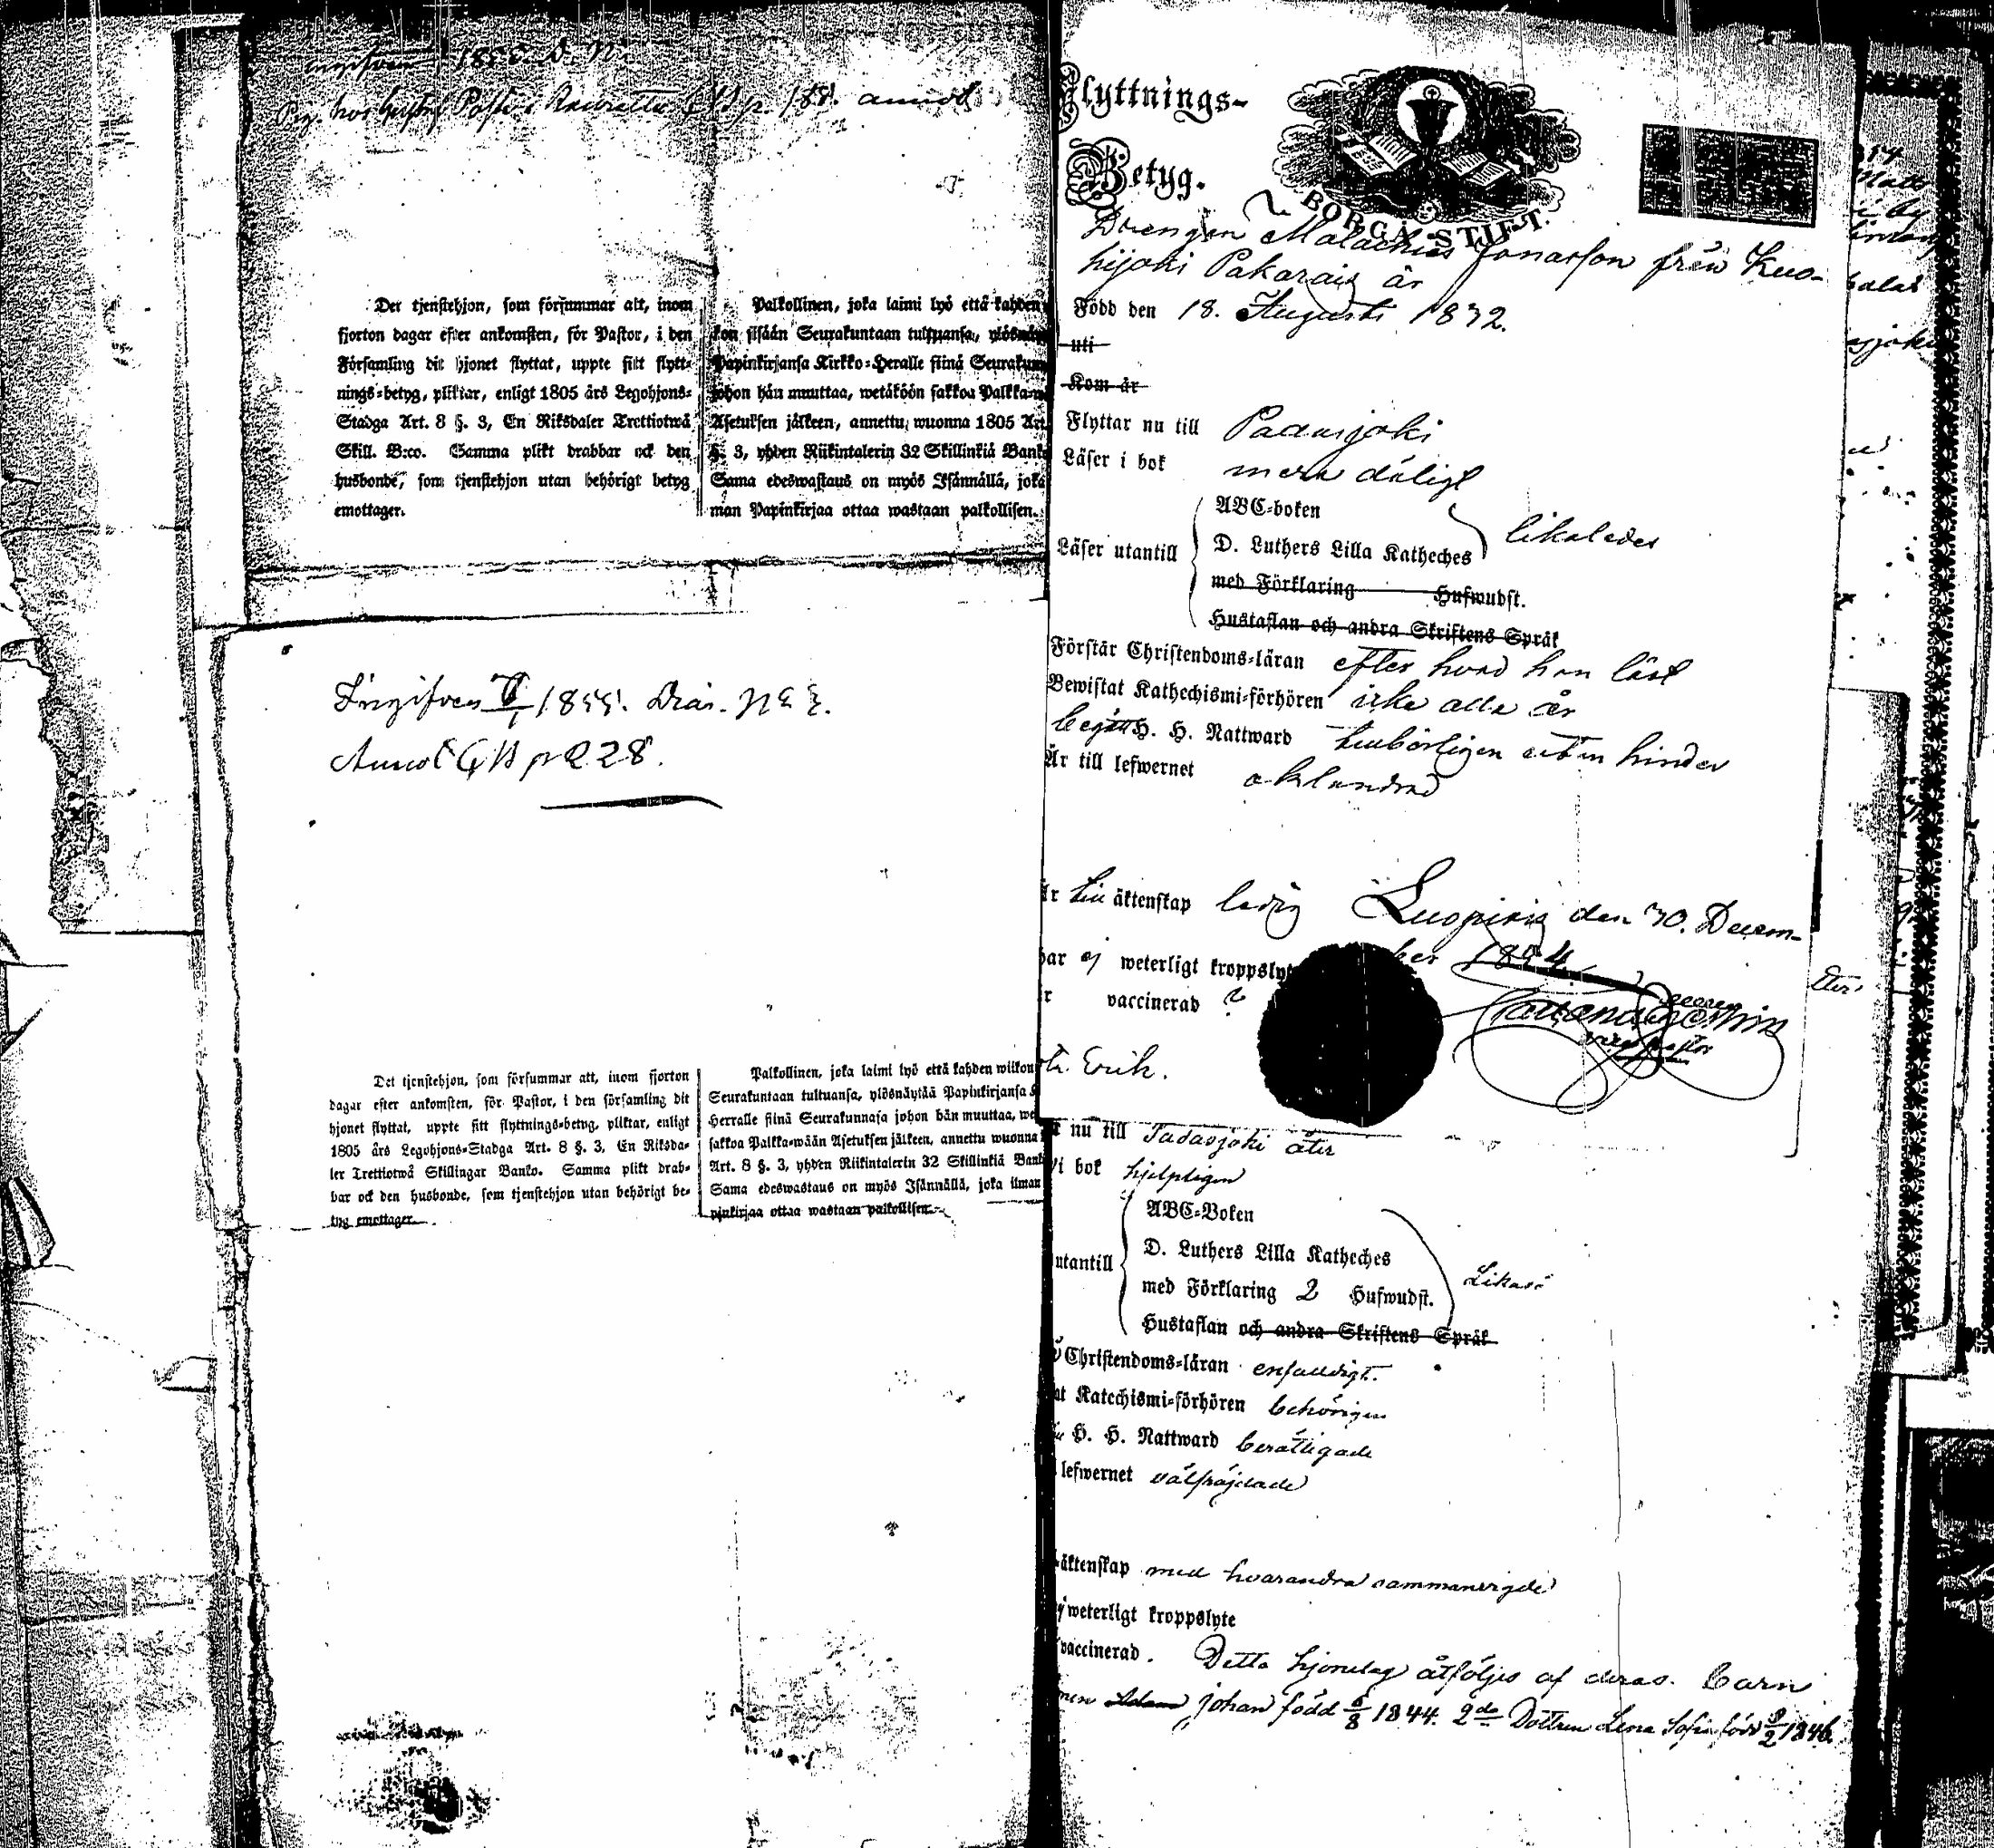 1855. D. N:
Det tjenstehjon, som försummar att, inom
fjorton dagar efter ankomsten, för Pastor, i den
Församling dit hjonet flyttat, uppte sitt flytt-
nings-betyg, pliktar, enligt 1805 års Legohjons-
Stadga Art. 8 §. 3, En Riksdaler Trettiotwå
Skill. B:co. Samma plikt drabbar ock den
husbonde, som tjenstehjon utan behörigt betyg
emottager.
Palkollinen, joka laimi lyö että kahden
kon sisään Seurakuntaan tultuansa, ylösnäy
Papinkirjansa Kirkko-Heralle siinä Seurakun
johon hän muuttaa, wetäköön sakkoa Palkka-
Asetuksen jälkeen, annettu wuonna 1805 Art.
§. 3, yhden Riikintalerin 32 Skillinkiä Banko
Sama edeswastaus on myös Isännällä, joka
man Papinkirjaa ottaa wastaan palkollisen.
Ingifven 1855. Diar. N 
Annot CB p 228.
Det tjenstehjon, som försummar att, inom fjorton
dagar efter ankomsten, för Pastor, i den församling dit
hjonet flyttat, uppte sitt flyttnings-betyg, pliktar, enligt
1805 års Legohjons-Stadga Art. 8 §. 3, En Riksda-
ler Trettiotwå Skillingar Banko. Samma plikt drab-
bar ock den husbonde, som tjenstehjon utan behörigt be-
tyg emottager.
Palkollinen, joka laimi lyö että kahden wiikon
Seurakuntaan tultuansa, ylösnäytää Papinkirjansa
Herralle siinä Seurakunnasa johon hän muuttaa, we
sakkoa Palkka-wään Asetuksen jälkeen, annettu wuonna
Art. 8 §. 3, yhden Riikintalerin 32 Skillinkiä Bank
Sama edeswastaus on myös Isännällä, joka ilman
pinkirjaa ottaa wastaan palkollisen.
Flyttnings-
Betyg.
BORGÅ STIFT.
Drengen Malachias Jonasson från Kuo-
hijoki Pakarais är
Född den 18. Augusti 1832.
uti
Kom år
Flyttar nu till Padasjoki
Läser i bok mera dåligt
Läser utantill
ABC-boken
D. Luthers Lilla Katheches
med Förklaring Hufwudst.
Hustaflan och andra Skriftens Språk
likaledes
Förstår Christendoms-läran efter hvad han läst
Bewistat Kathechismi-förhören icke alla år
Begått H. H. Nattward tillbörligen utan hinder
Är till lefwernet oklandrad
Är till äktenskap ledig Luopiois den 30. Decem-
ber 1854.
har ej weterligt kroppslyte
vaccinerad ?
Erik.
nu till Padasjoki åter
i bok hjelpligen
utantill
ABC-Boken
D. Luthers Lilla Katheches
med Förklaring 2 Hufwudst.
Hustaflan och andra Skriftens Språk
Likaså
Christendoms-läran enfaldigt.
at Katechismi-förhören behörigen
H. H. Nattward berättigade
lefwernet välfräjdade
äktenskap med hvarandra sammanvigde
ej weterligt kroppslyte
vaccinerad. Detta hjonelag åtföljes af deras barn
Johan född 6/8 1844. 2do Dottren Lena Sofia född 9/2 1846.